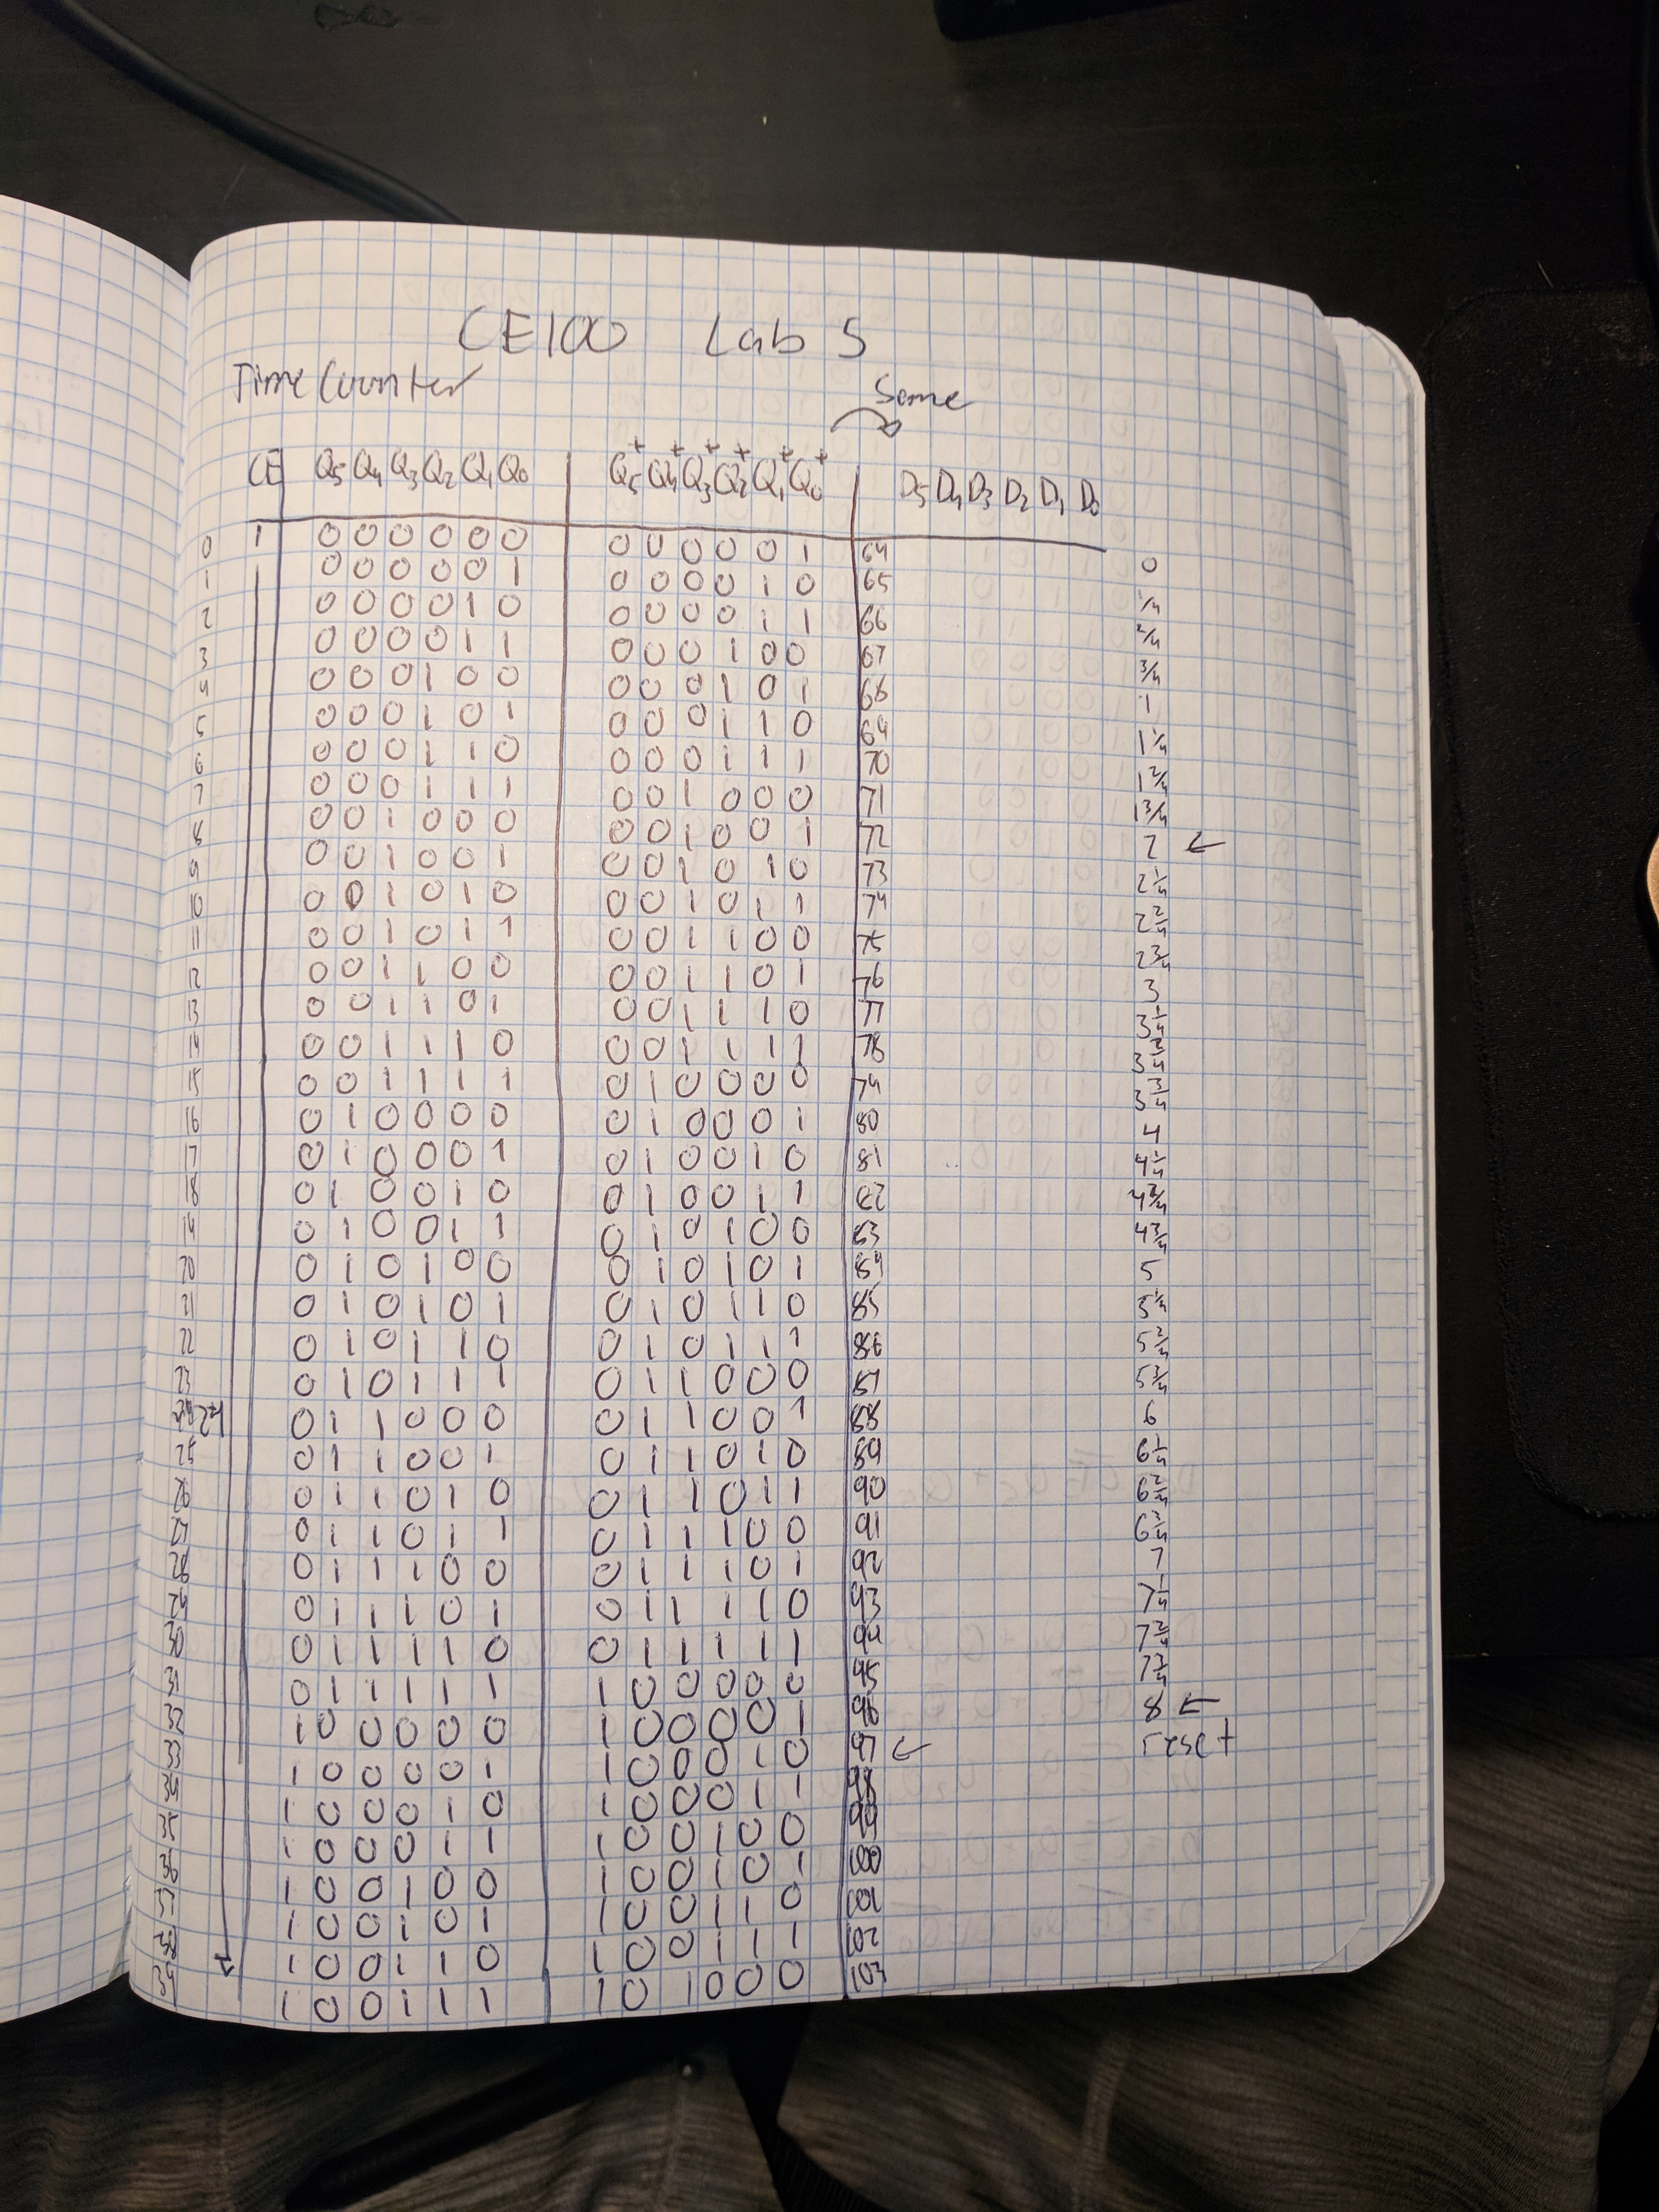 CE100 Lab 5
Time Counter
Same
CE Q5 Q4 Q3 Q2 Q1 Q0 Q5+ Q4+ Q3+ Q2+ Q1+ Q0+ D5 D4 D3 D2 D1 D0
0 1 0 0 0 0 0 0 0 0 0 0 0 1 64 0
1 0 0 0 0 0 1 0 0 0 0 1 0 65 1/4
2 0 0 0 0 1 0 0 0 0 0 1 1 66 2/4
3 0 0 0 0 1 1 0 0 0 1 0 0 67 3/4
4 0 0 0 1 0 0 0 0 0 1 0 1 68 1
5 0 0 0 1 0 1 0 0 0 1 1 0 69 1 1/4
6 0 0 0 1 1 0 0 0 0 1 1 1 70 1 2/4
7 0 0 0 1 1 1 0 0 1 0 0 0 71 1 3/4
8 0 0 1 0 0 0 0 0 1 0 0 1 72 2 ←
9 0 0 1 0 0 1 0 0 1 0 1 0 73 2 1/4
10 0 0 1 0 1 0 0 0 1 0 1 1 74 2 2/4
11 0 0 1 0 1 1 0 0 1 1 0 0 75 2 3/4
12 0 0 1 1 0 0 0 0 1 1 0 1 76 3
13 0 0 1 1 0 1 0 0 1 1 1 0 77 3 1/4
14 0 0 1 1 1 0 0 0 1 1 1 1 78 3 2/4
15 0 0 1 1 1 1 0 1 0 0 0 0 79 3 3/4
16 0 1 0 0 0 0 0 1 0 0 0 1 80 4
17 0 1 0 0 0 1 0 1 0 0 1 0 81 4 1/4
18 0 1 0 0 1 0 0 1 0 0 1 1 82 4 2/4
19 0 1 0 0 1 1 0 1 0 1 0 0 83 4 3/4
20 0 1 0 1 0 0 0 1 0 1 0 1 84 5
21 0 1 0 1 0 1 0 1 0 1 1 0 85 5 1/4
22 0 1 0 1 1 0 0 1 0 1 1 1 86 5 2/4
23 0 1 0 1 1 1 0 1 1 0 0 0 87 5 3/4
24 0 1 1 0 0 0 0 1 1 0 0 1 88 6
25 0 1 1 0 0 1 0 1 1 0 1 0 89 6 1/4
26 0 1 1 0 1 0 0 1 1 0 1 1 90 6 2/4
27 0 1 1 0 1 1 0 1 1 1 0 0 91 6 3/4
28 0 1 1 1 0 0 0 1 1 1 0 1 92 7
29 0 1 1 1 0 1 0 1 1 1 1 0 93 7 1/4
30 0 1 1 1 1 0 0 1 1 1 1 1 94 7 2/4
31 0 1 1 1 1 1 1 0 0 0 0 0 95 7 3/4
32 1 0 0 0 0 0 1 0 0 0 0 1 96 8 ←
33 1 0 0 0 0 1 1 0 0 0 1 0 97 ← reset
1 0 0 0 1 0 1 0 0 0 1 1 98
1 0 0 0 1 1 1 0 0 1 0 0 99
36 1 0 0 1 0 0 1 0 0 1 0 1 100
37 1 0 0 1 0 1 1 0 0 1 1 0 101
38 1 0 0 1 1 0 1 0 0 1 1 1 102
39 1 0 0 1 1 1 1 0 1 0 0 0 103